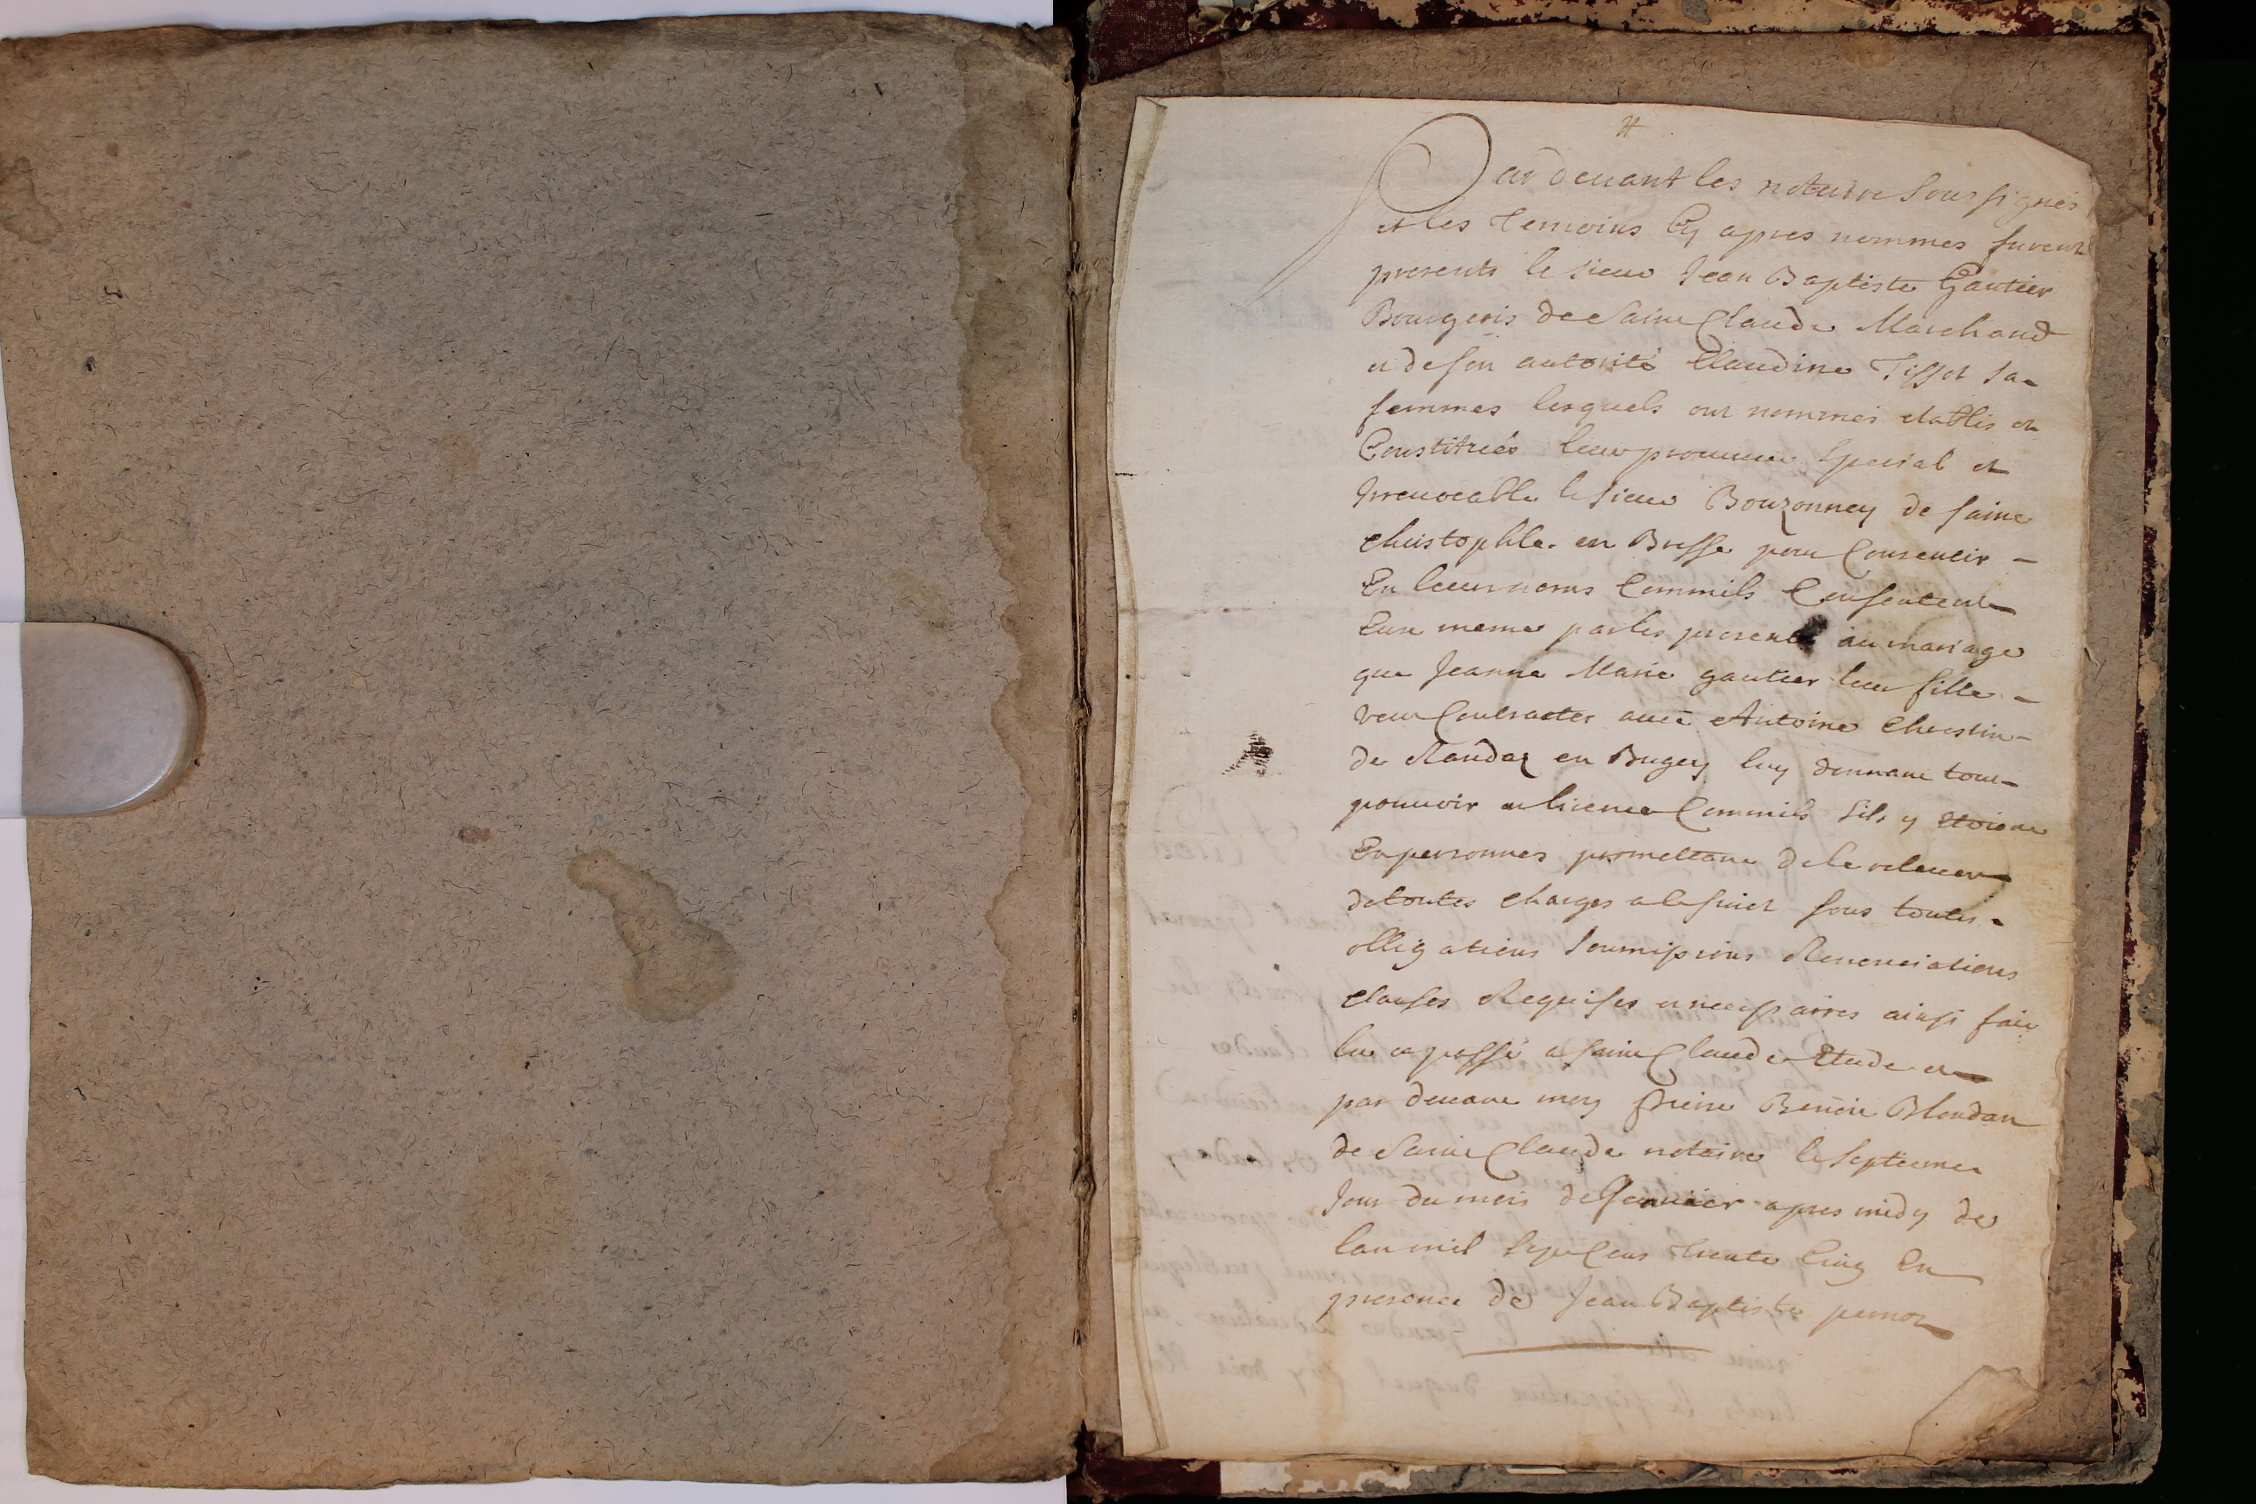 Par devant les notaire Soussignés
et les Temoins Cy apres nommes furent
presents le sieur Jean Baptiste Gautier
Bourgeois de Saint Claude Marchand
et de son autorité Claudine Tissot sa
femmes lesquels ont nommés etablis et
Constitués leur procureur special et
Irreuocable le sieur Bouzonney de saint
christophle en Bresse pour Consentir
En leeurs noms Commils Consentent
Eux meme par les presente au mariage
que Jeanne Marie gautier leur fille
veut Contracter auec Antoine
de en Bugey luy donnant tout
pouuoir et licence Commils sils y etoient
En personnes promettant de le releuer
de toutes charges a le suiet sous toutes
obligations soumissions Renonciations
clauses Requises et necessaires ainsi fait
lu et passé a saint Claude Etude et
par deuant moy Benoit Blondan
de Saint Claude notaire le septieme
Jour du mois de Januier apres midy de
lan mil sept Cens trente Cinq En
presence de Jean Baptiste pernot